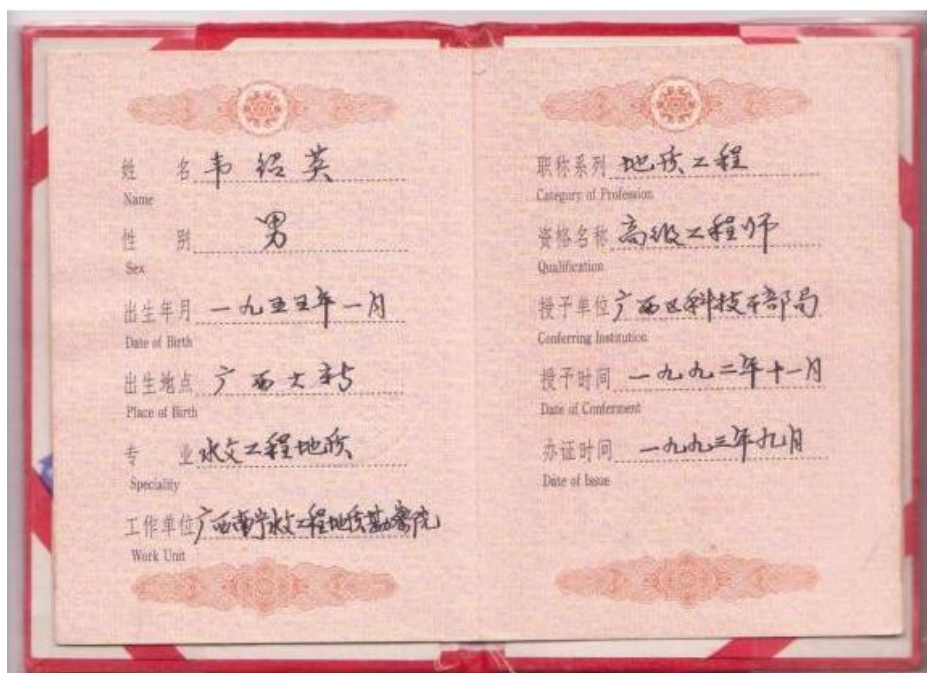 姓 名 韦绍英
Name
性 别 男
Sex
出生年月 一九五五年一月
Date of Birth
出生地点 广西大新
Place of Birth
专 业 水文工程地质
Speciality
工作单位 广西南宁水文工程地质勘察院
Work Unit
职称系列 地质工程
Category of Profession
资格名称 高级工程师
Qualification
授予单位 广西区科技干部局
Conferring Institution
授予时间 一九九二年十一月
Date of Conferment
办证时间 一九九三年九月
Date of Issue